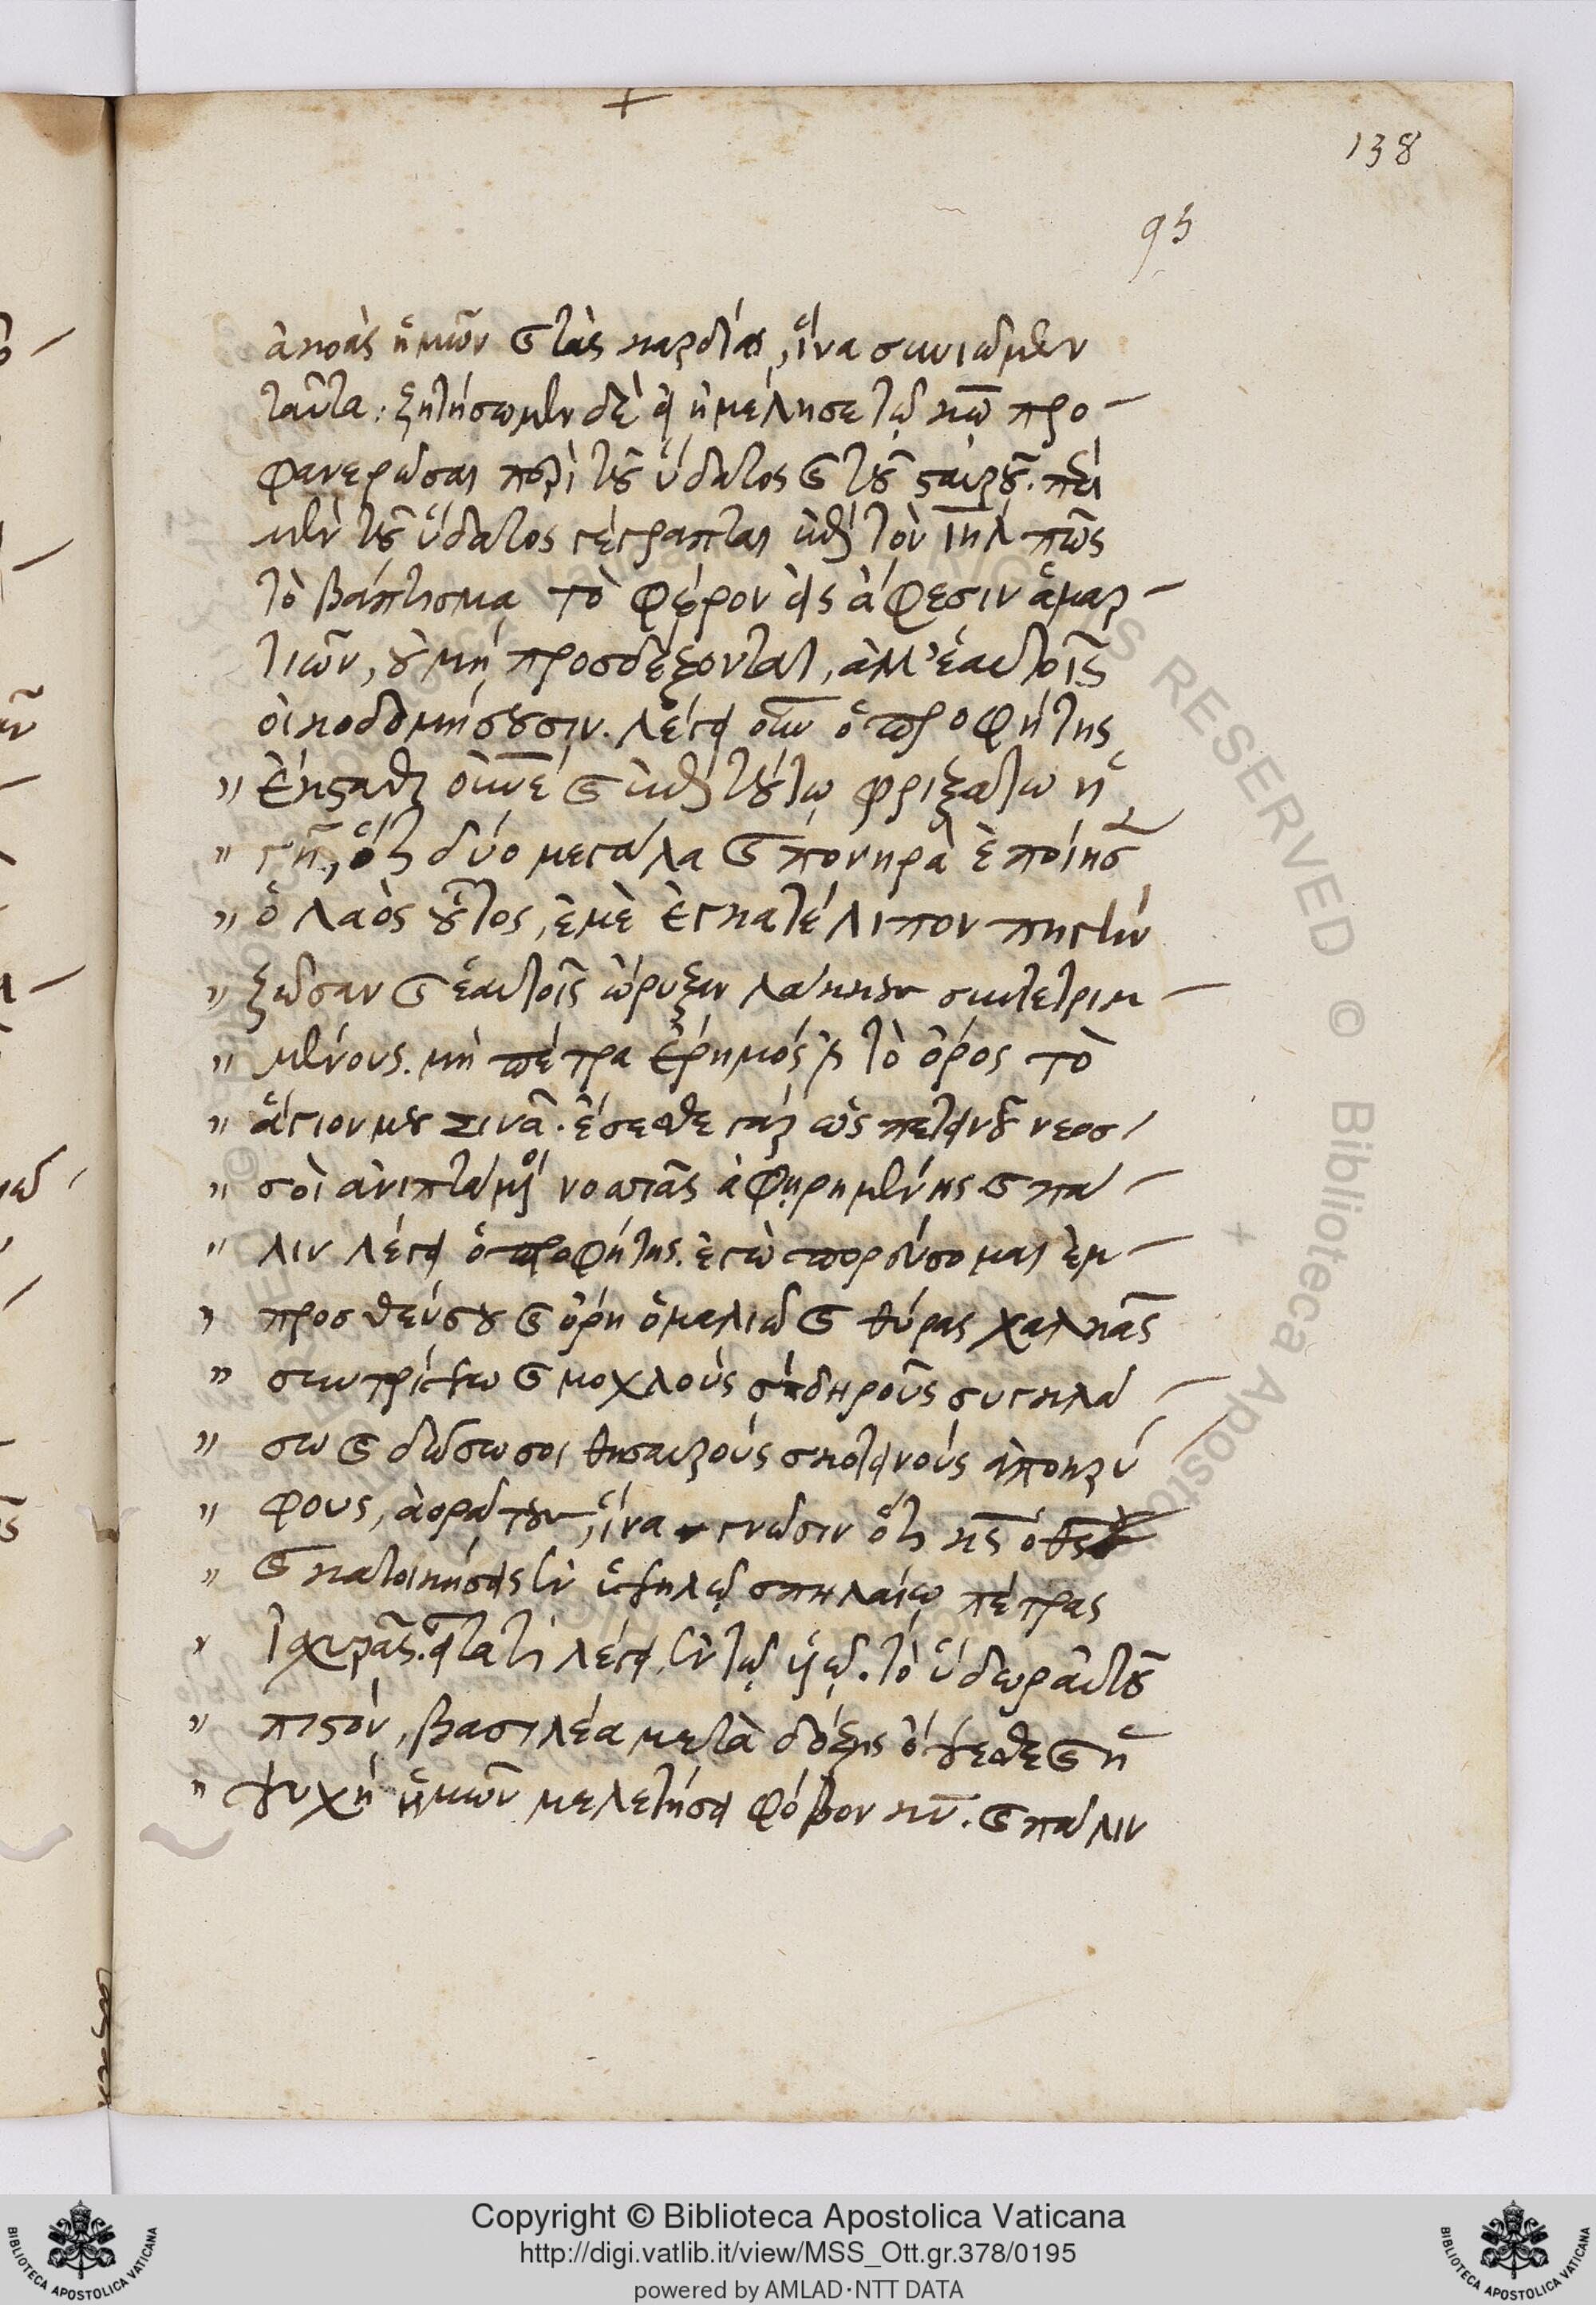 138
95
ἀκοὰς ἡμῶν καὶ τὰς καρδίας, ἵνα συνιῶμεν
ταῦτα: ζητήσωμεν δὲ εἰ ἠμέλησε τῷ κω̅ προ-
φανερῶσαι περὶ τοῦ ὕδατος καὶ τοῦ σταυροῦ. περὶ
μὲν τοῦ ὕδατος γέγραπται ἐπὶ τὸν ιη̅λ πῶς
τὸ βάπτισμα τὸ φέρον εἰς ἄφεσιν ἁμαρ-
τιῶν, οὐ μὴ προσδέξονται, ἀλλ' ἑαυτοῖς
οἰκοδομήσουσιν. λέγει οὖν ὁ προφήτης
" ἔκστηθι οὐνὲ καὶ ἐπὶ τούτῳ φριξάτω ἡ
" γῆ, ὅτι δύο μεγάλα καὶ πονηρὰ ἐποίησεν
" ὁ λαὸς οὗτος, ἐμὲ ἐγκατέλιπον πηγὴν
" ζῶσαν καὶ ἑαυτοῖς ὤρυξαν λάκκους συντετριμ-
" μένους. μὴ πέτρα ἔρημός ἐστι τὸ ὄρος τὸ
" ἅγιον μου Σινᾶ. ἔσεσθε γὰρ ὡς πετεινοῦ νεοσ-
" σοὶ ἀνιπτάμενοι νοσσιᾶς ἀφῃρημένης καὶ πά-
" λιν λέγει ὁ προφήτης. ἐγὼ πορεύσομαι ἔμ-
" προσθέν σου καὶ ὄρη ὁμαλιῶ καὶ θύρας χαλκᾶς
" συντρίψω καὶ μοχλοὺς σιδηροῦς συγκλά-
" σω καὶ δώσω σοι θησαυροὺς σκοτεινοὺς ἀποκρύ-
" φους, ἀοράτους, ἵνα γνῶσιν ὅτι κς̅ ὁ θς̅
" καὶ κατοικήσεις ἐν ὑψηλῷ σπηλαίῳ πέτρας
" ἰσχυρᾶς. εἶτα τί λέγει ἐν τῷ υἱῷ. τὸ ὕδωρ αὐτοῦ
" πιστόν, βασιλέα μετὰ δόξης ὄψεσθε καὶ ἡ
" ψυχὴ ἡμῶν μελετήσει φόβον κυ̅. καὶ πάλιν
Copyright © Biblioteca Apostolica Vaticana
http://digi.vatlib.it/view/MSS_Ott.gr.378/0195
powered by AMLAD·NTT DATA